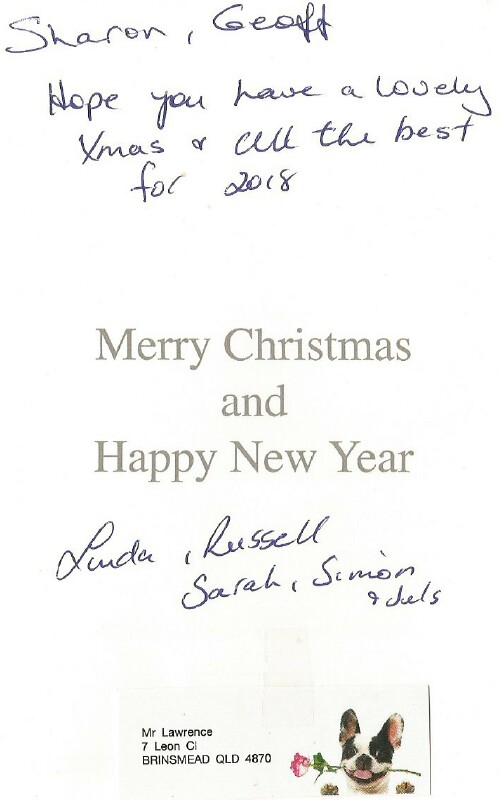 Sharon, Geoff
Hope you have a lovely
Xmas & all the best
for 2018
Merry Christmas
and
Happy New Year
Linda, Russell
Sarah, Simon
& Juls
Mr Lawrence
7 Leon Cl
BRINSMEAD QLD 4870